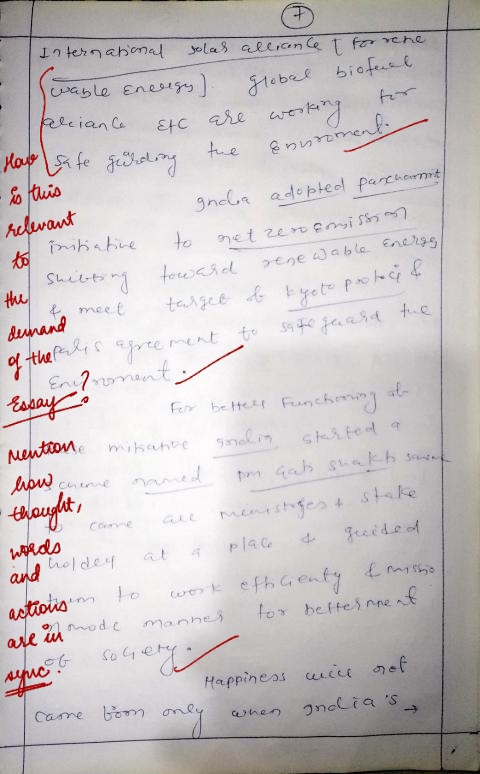 7
International solar alliance [ for rene
wable energy]. global biofuel
alliance etc are working for
safe guarding the Enviroment.
India adopted panchamrit
initiative to net zero emission
shifting toward renewable energy
& meet target of kyoto protocol &
paris agreement to safeguard the
Enviroment.
For better functioning of
initiative India started a
scheme named PM Gati shakti
to came all ministries & stake
holder at a place & guided
them to work efficienty & missio
n mode manner for betterment
of society.
Happiness will not
came from only when India's →
How
is this
relevant
to
the
demand
of the
Essay?
Mention
how
thought,
words
and
actions
are in
sync.